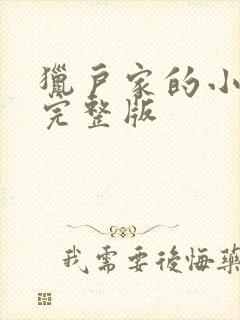 獵戶家的小
完整版
我需要後悔藥